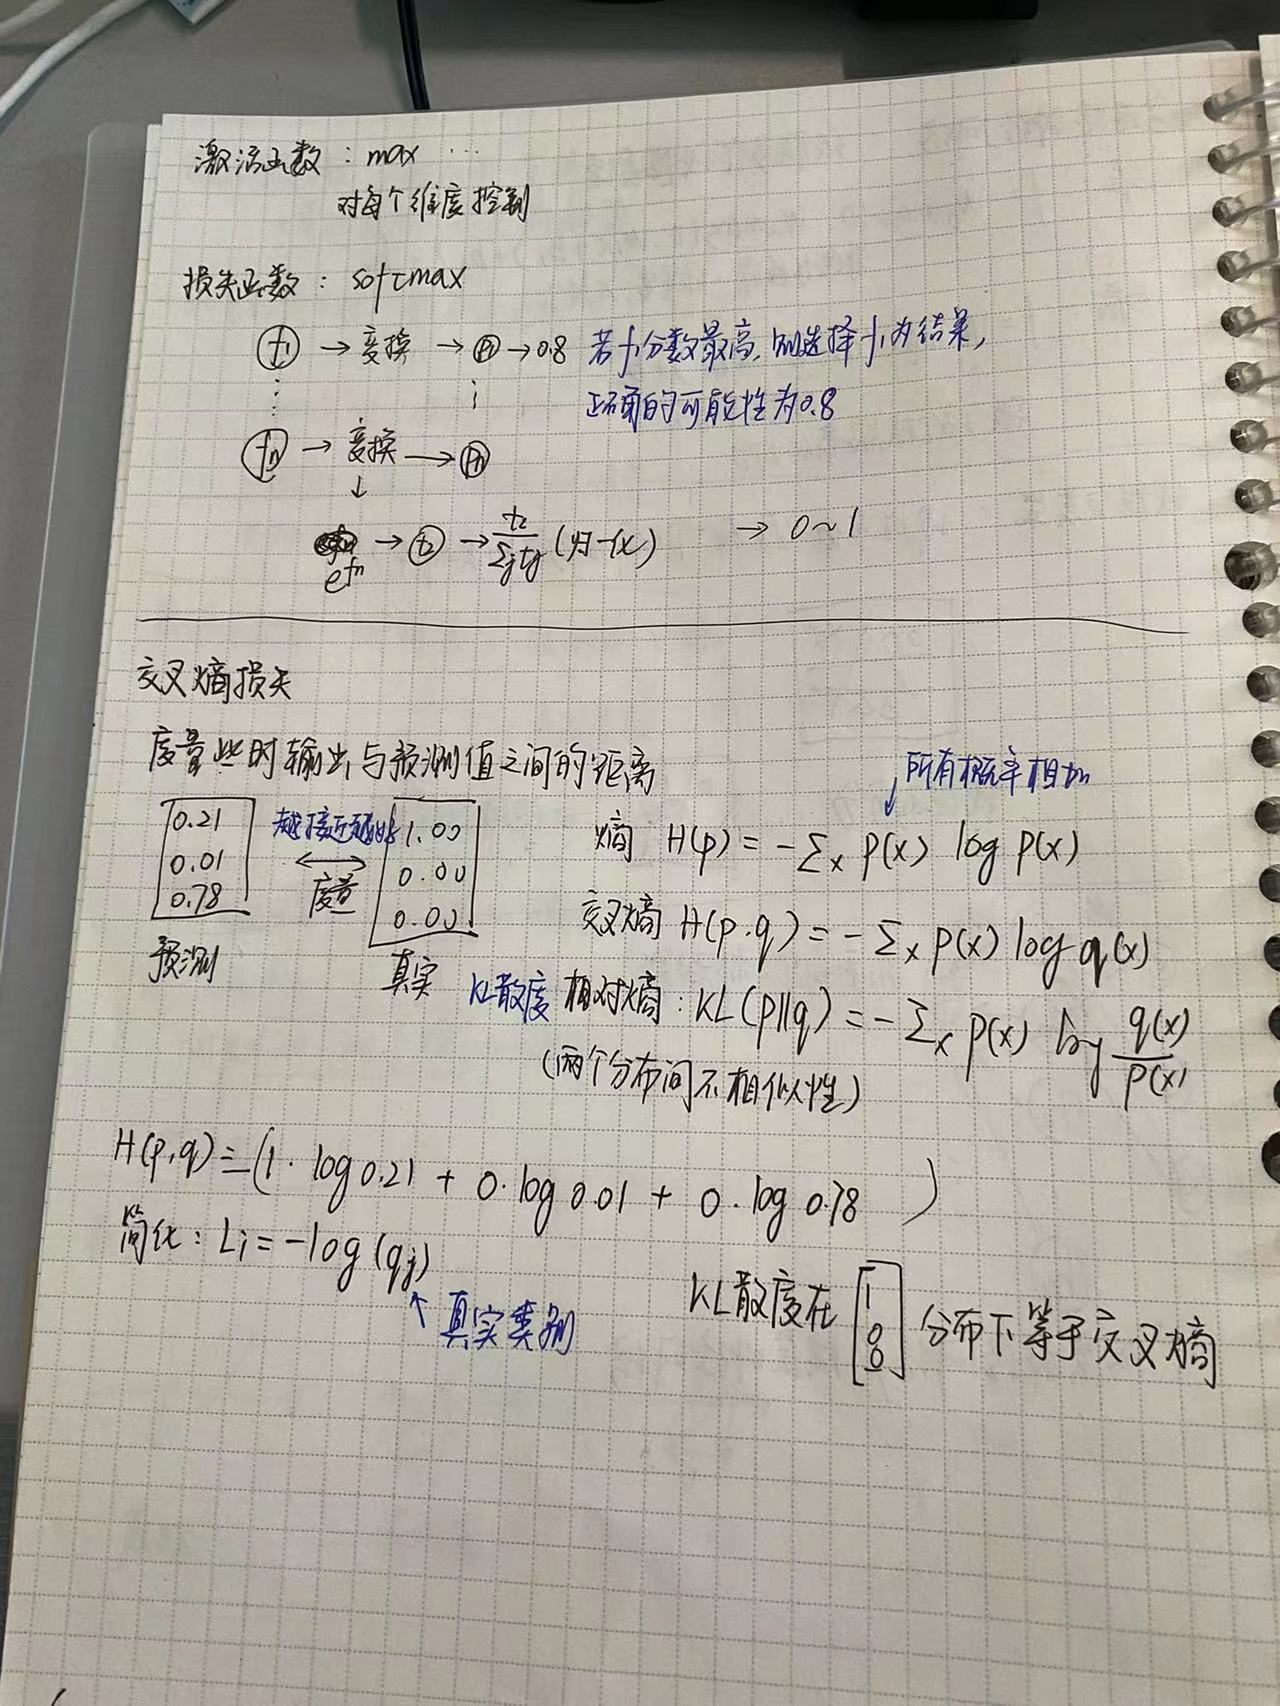 激活函数：max …
对每个维度控制
损失函数：softmax
f₁ → 变换 → P₁ → 0.8 若f₁分数最高，则选择f₁为结果，
正确的可能性为0.8
⋮ ⋮
fn → 变换 → Pn
↓
e^fn → t₂ → t₂/Σj tj (归一化) → 0~1
交叉熵损失
度量 时输出与预测值之间的距离
所有概率相加
0.21 越接近越好 1.00
0.01 ↔ 0.00
0.78 度量 0.00
预测 真实
熵 H(p) = -Σx p(x) log p(x)
交叉熵 H(p,q) = -Σx p(x) log q(x)
KL散度 相对熵：KL(p||q) = -Σx p(x) log q(x)/p(x)
(两个分布间不相似性)
H(p,q) = -(1·log0.21 + 0·log0.01 + 0·log0.78)
简化：Li = -log(qj)
↑ 真实类别
KL散度在[1 0 0]分布下等于交叉熵